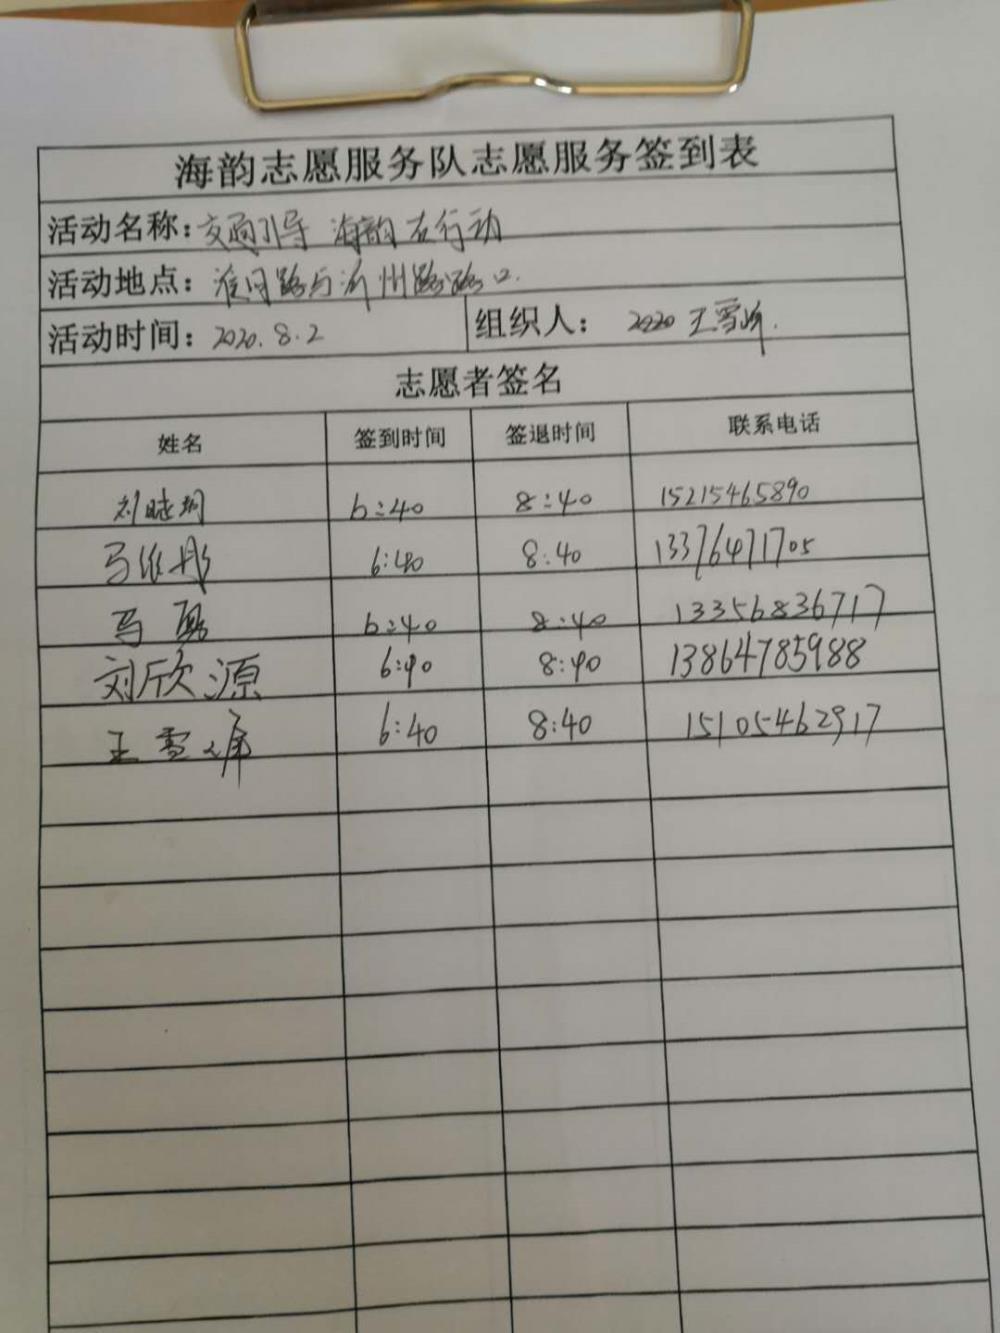 海韵志愿服务队志愿服务签到表
活动名称:交通引导 海韵在行动
活动地点:淮河路与沂州路路口.
活动时间:2020.8.2 组织人: 2020 王雪峰.
志愿者签名
姓名 签到时间 签退时间 联系电话
刘晓 6:40 8:40 15215465890
马维彤 6:40 8:40 13376471705
马 6:40 8:40 13356836717
刘欣源 6:40 8:40 13864785988
王雪峰 6:40 8:40 15105462917